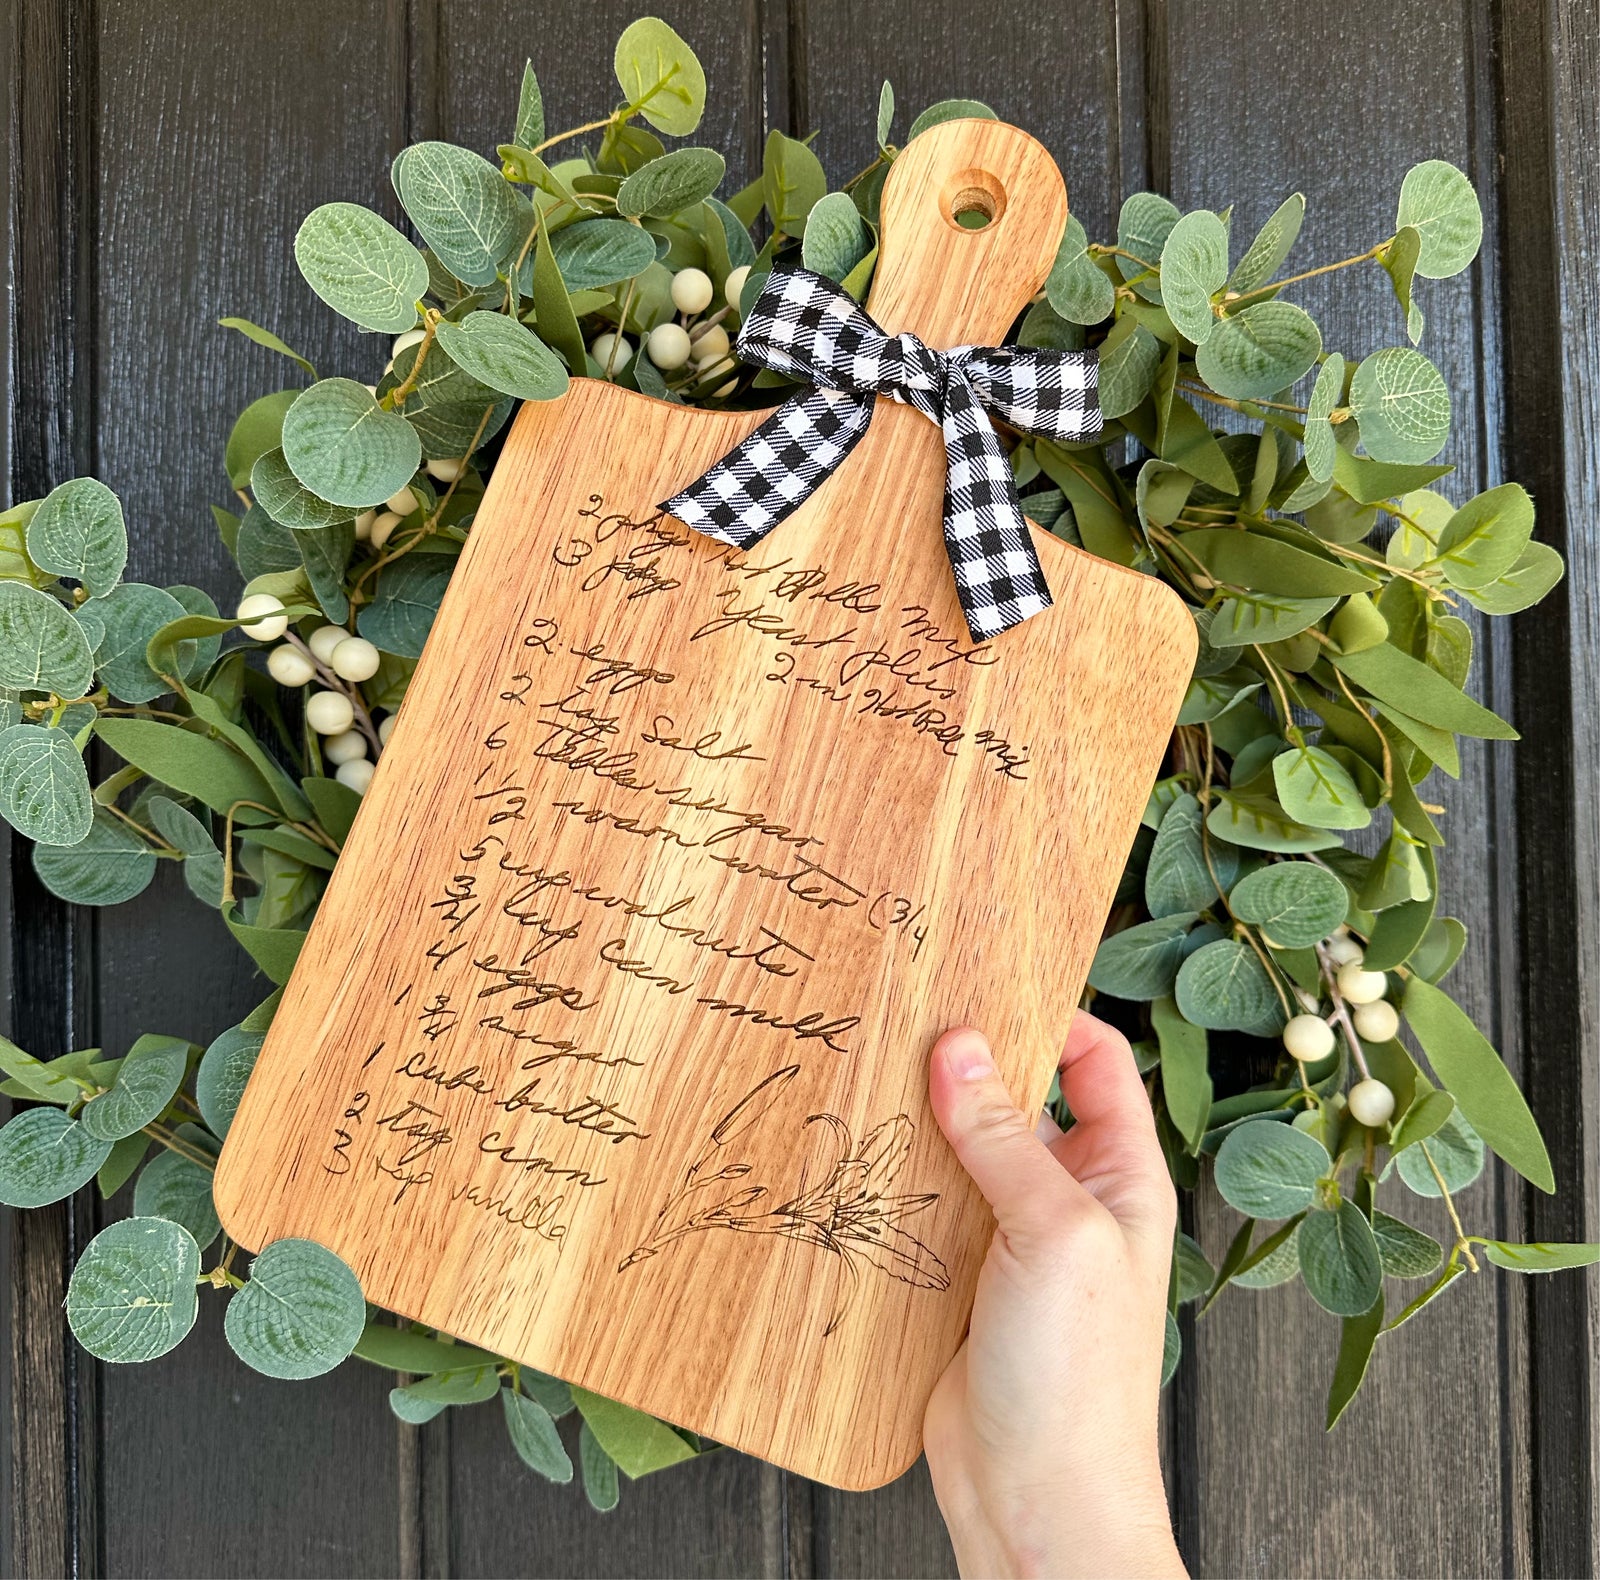 2 pkg. Hot Rolls mix
3 pkg yeast plus
2-in Hot Roll Mix
2 eggs
2 tsp Salt
6 Tables sugar
1 1/2 warm water (3/4
5 cup walnuts
3/4 cup can milk
4 eggs
1 3/4 sugar
1 cube butter
2 tsp cinn
3 tsp vanilla